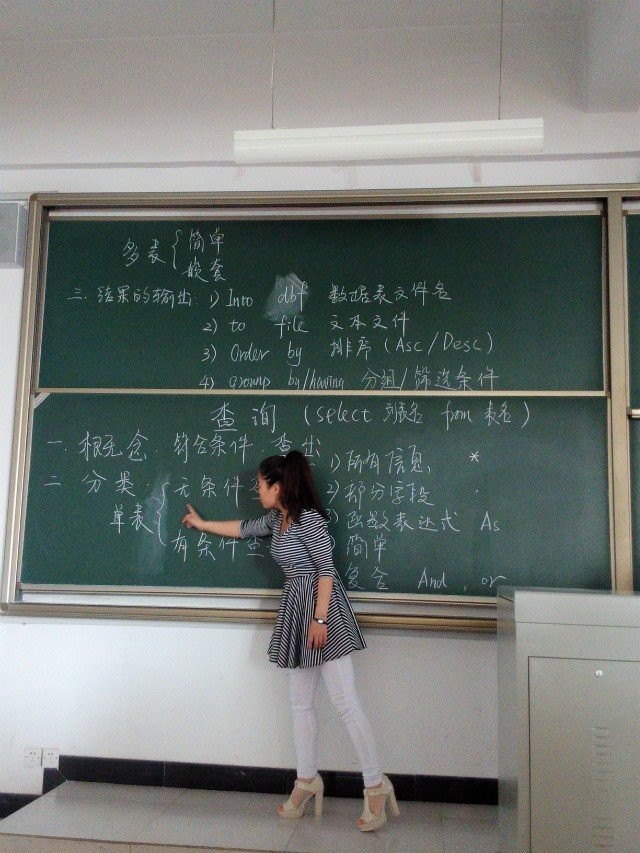 多表 { 简单
嵌套
三. 结果的输出: 1) Into dbf 数据表文件名
2) to file 文本文件
3) Order by 排序 (Asc/Desc)
4) group by/having 分组/筛选条件
查询 (select 列名 from 表名)
一. 概念: 符合条件 查出
1) 所有信息 *
二. 分类: 无条件
2) 部分字段 .
单表 {
3) 函数表达式 As
有条件查 简单
复合 And, or